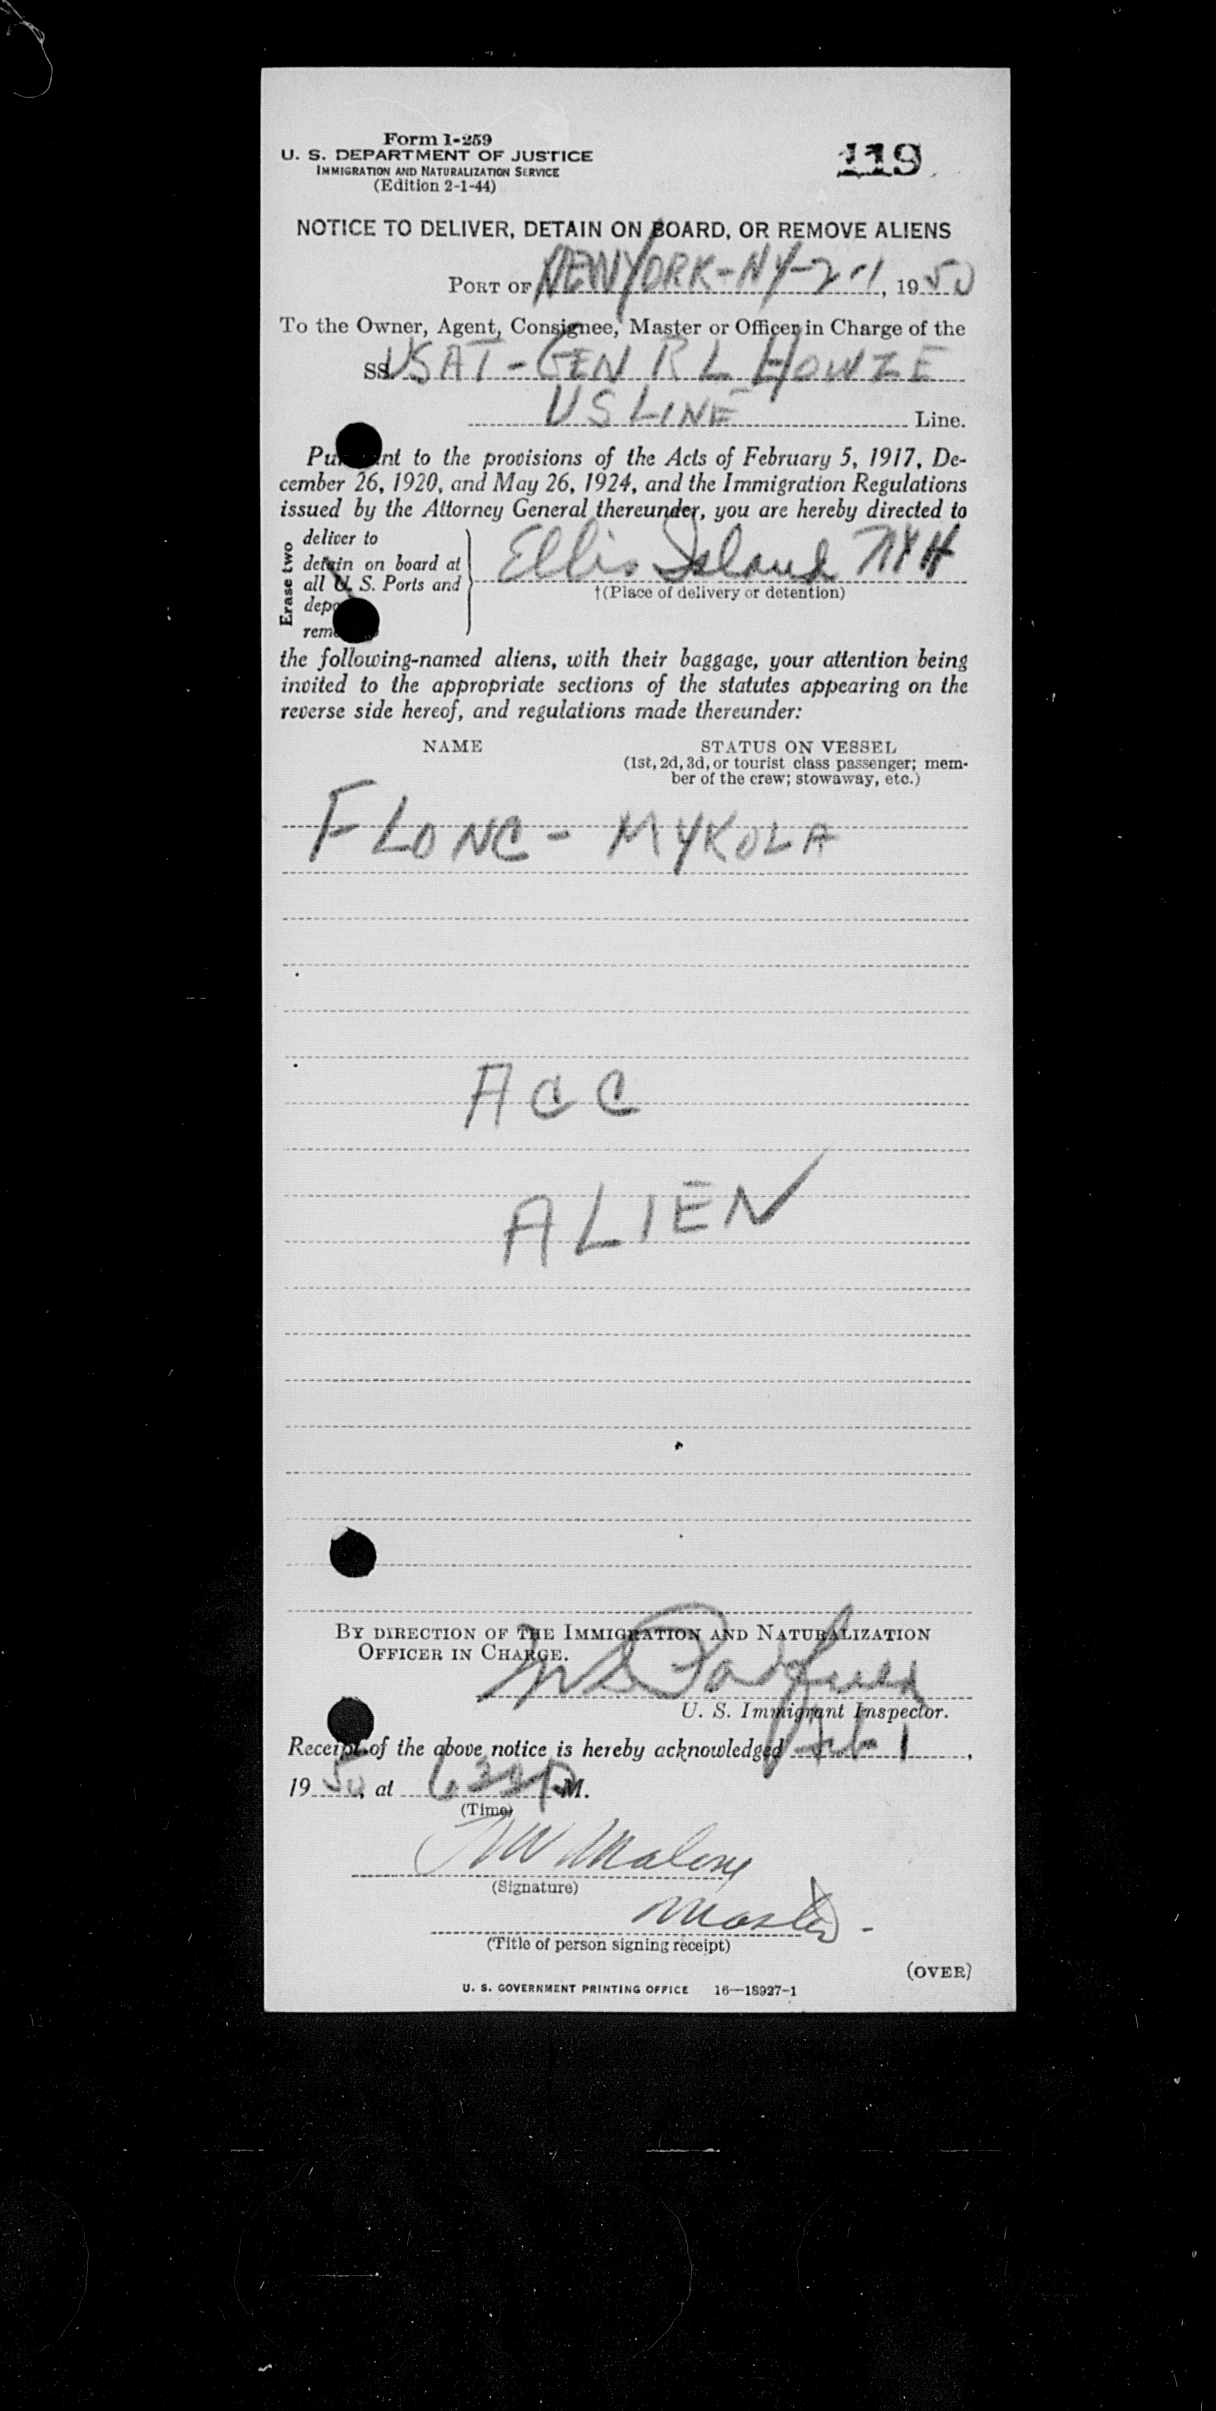 Form I-259
U. S. DEPARTMENT OF JUSTICE
IMMIGRATION AND NATURALIZATION SERVICE
(Edition 2-1-44)
119
NOTICE TO DELIVER, DETAIN ON BOARD, OR REMOVE ALIENS
PORT OF NEW YORK-NY-2-1, 1950
To the Owner, Agent, Consignee, Master or Officer in Charge of the
SS USAT-GEN R L HOWZE
US LINE Line.
Pu nt to the provisions of the Acts of February 5, 1917, De-
cember 26, 1920, and May 26, 1924, and the Immigration Regulations
issued by the Attorney General thereunder, you are hereby directed to
Erase two
deliver to
detain on board at
all U. S. Ports and
depo
rem
Ellis Island NYH
†(Place of delivery or detention)
the following-named aliens, with their baggage, your attention being
invited to the appropriate sections of the statutes appearing on the
reverse side hereof, and regulations made thereunder:
NAME
STATUS ON VESSEL
(1st, 2d, 3d, or tourist class passenger; mem-
ber of the crew; stowaway, etc.)
FLONC - MYKOLA
ACC
ALIEN
BY DIRECTION OF THE IMMIGRATION AND NATURALIZATION
OFFICER IN CHARGE.
U. S. Immigrant Inspector.
Receipt of the above notice is hereby acknowledged Feb 1,
1950, at M.
(Time)
Malone
(Signature)
Master -
(Title of person signing receipt)
(OVER)
U. S. GOVERNMENT PRINTING OFFICE 16—18927-1